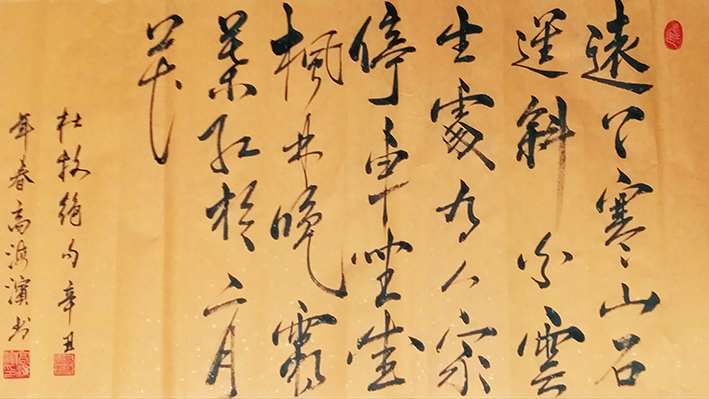 遠上寒山石
逕斜白雲
生處有人家
停車坐愛
楓林晚霜
葉紅於二月
花
杜牧絕句辛丑
年春高海濱书